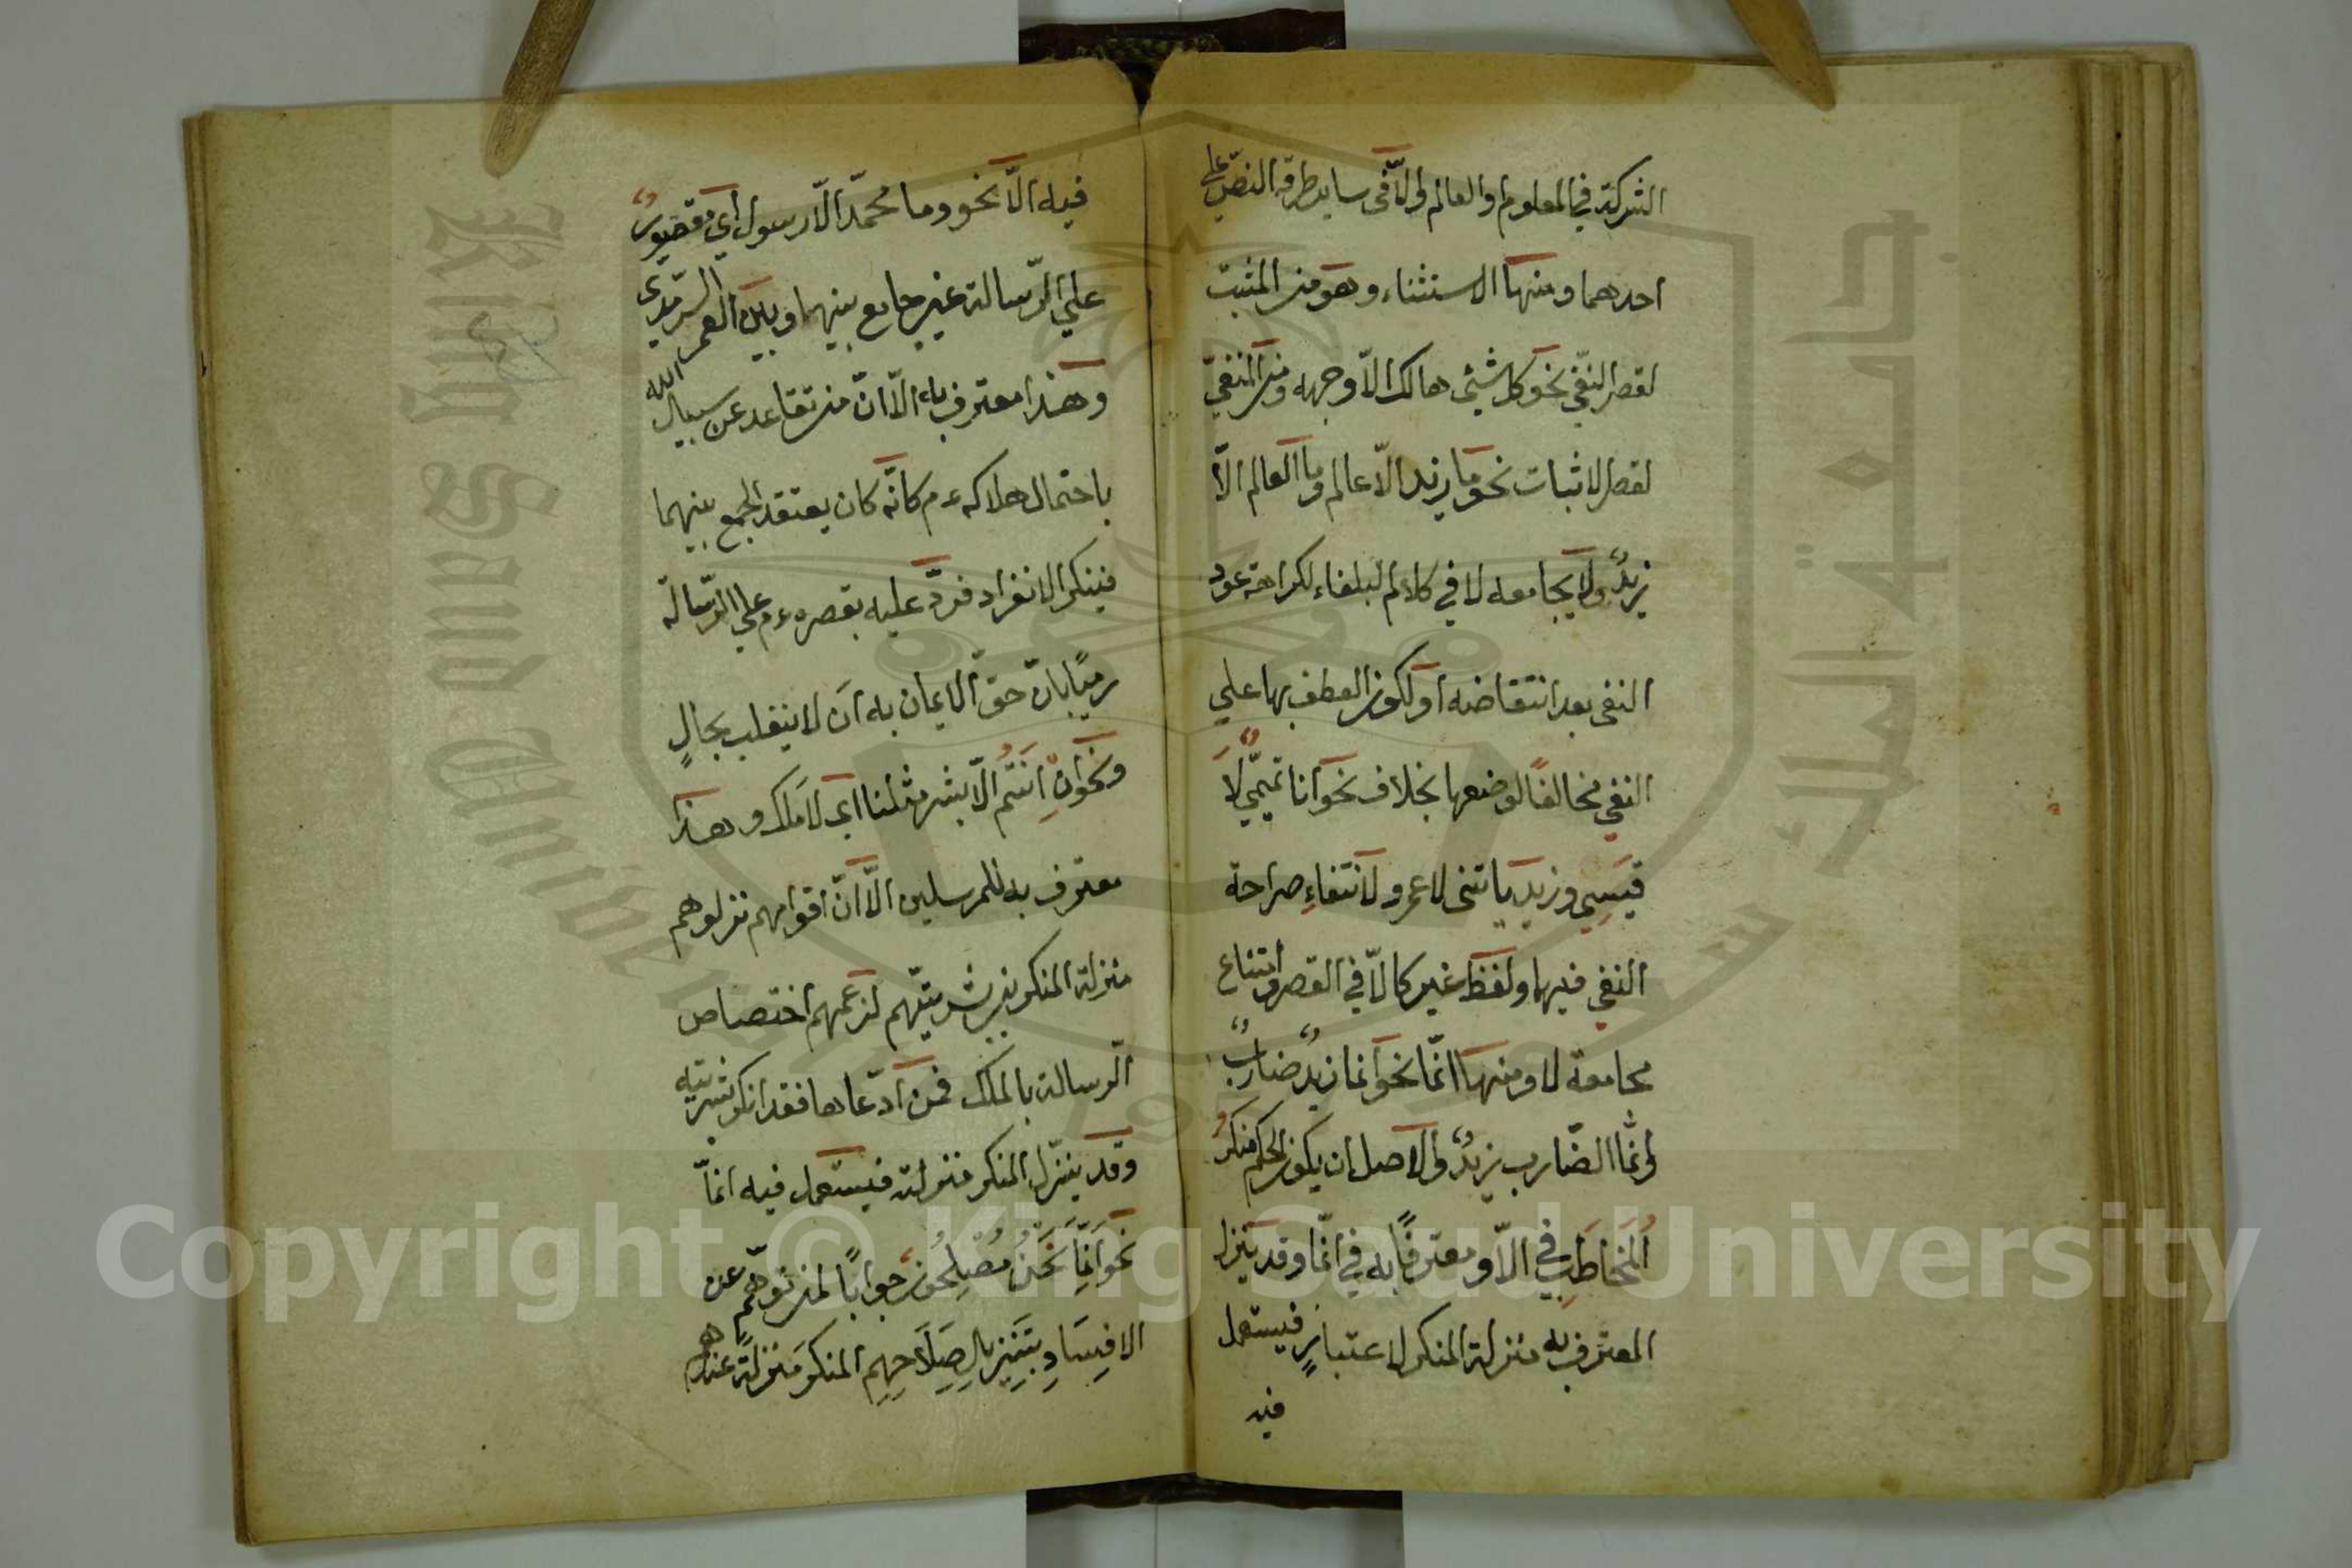 الشركة في المعلوم والعالم والآ في ساير طرقه النصّ علي
احدهما ومنها الاستثناء وهو من المثبت
لقصر النفي نحو كل شيئ هالك الّا وجهه ومن المنفيّ
لقصر الاثبات نحو ما زيد الّا عالم وما العالم الّا
زيدٌ ولا يجامعه لا في كلام البلغاء لكراهة عود
النفي بعد انتقاضه او لكون العطف بها علي
النفي مخالفًا لوضعها بخلاف نحو انا تميمّي لَا
قيسِي وزيد ياتيني لا عمرو لانتفاءِ صراحة
النفي فيهما ولفظ غير كالّا في القصر وامتناع
مجامعة لا ومنها انّما نحو انما زيدٌ ضاربٌ
وانّما الضّارب زيدٌ والاصل ان يكون الحكم منكرُ
المخاطَبِ في الّا ومعترفًا به في انّما وقد ينزل
المعترف به منزلة المنكر لاعتبارٍ فيستعمل
فيه
فيه الّا نحو وما محمّد الّا رسول اي مقصورٌ
علي الرّسالة غير جامع بينهما وبين العمر السرمدي
وهذا معترف به الّا انّ من تقاعد عن سبيل الله
باحتمال هلاكه ء م كانّه كان يعتقد الجمع بينهما
فينكر الانفراد فردّ عليه بقصره ء م علي الرّسالة
رميًا بانّ حقّ الايمان به ان لا ينقلب بحالٍ
ونحو انِْ انتُم الّا بشر مثلنا اي لا ملك وهذا
معترف به للمرسلين الّا انّ اقوامهم نزلوهم
منزلة المنكرين بشريتّهم لزعمهم اختصاص
الرسالة بالملك فمن ادّعاها فقد انكر بشريته
وقد ينزّل المنكر منزلته فيستعمل فيه انّما
نحو انَّما نَحْنُ مُصْلِحُونَ جوابًا لمن توهّم عن
الافِسَادِ بتَنِزيلِ صِلَاحِهِم المنكر منزلةً عندهم
Copyright © King Saud University
King Saud University
جامعة الملك سعود